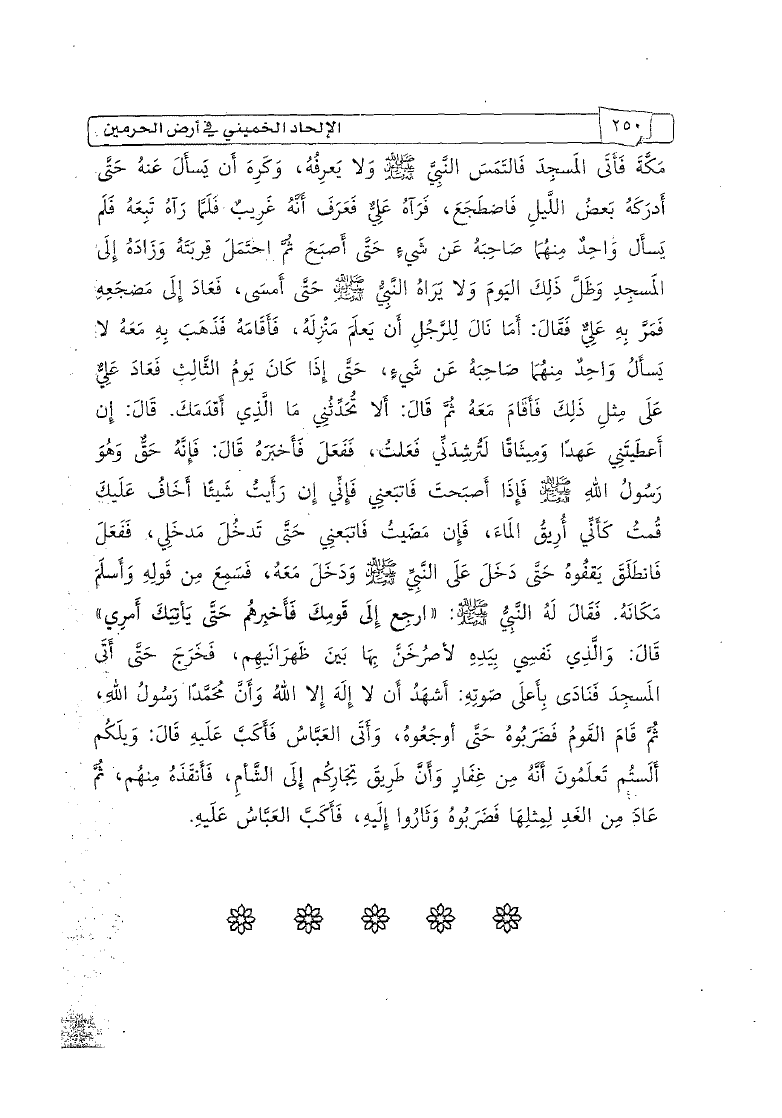 ٢٥٠
الإلحاد الخميني في أرض الحرمين
مَكَّةَ فَأَتَى المَسجِدَ فَالتَمَسَ النَّبِيَّ ﷺ وَلا يَعرِفُهُ، وَكَرِهَ أَن يَسأَلَ عَنهُ حَتَّى
أَدرَكَهُ بَعضُ اللَّيلِ فَاضطَجَعَ، فَرَآهُ عَلِيٌّ فَعَرَفَ أَنَّهُ غَرِيبٌ فَلَمَّا رَآهُ تَبِعَهُ فَلَم
يَسأَل وَاحِدٌ مِنهُمَا صَاحِبَهُ عَن شَيءٍ حَتَّى أَصبَحَ ثُمَّ احتَمَلَ قِربَتَهُ وَزَادَهُ إِلَى
المَسجِدِ وَظَلَّ ذَلِكَ اليَومَ وَلا يَرَاهُ النَّبِيُّ ﷺ حَتَّى أَمسَى، فَعَادَ إِلَى مَضجَعِهِ
فَمَرَّ بِهِ عَلِيٌّ فَقَالَ: أَمَا نَالَ لِلرَّجُلِ أَن يَعلَمَ مَنْزِلَهُ، فَأَقَامَهُ فَذَهَبَ بِهِ مَعَهُ لا
يَسأَلُ وَاحِدٌ مِنهُمَا صَاحِبَهُ عَن شَيءٍ، حَتَّى إِذَا كَانَ يَومُ الثَّالِثِ فَعَادَ عَلِيٌّ
عَلَى مِثلِ ذَلِكَ فَأَقَامَ مَعَهُ ثُمَّ قَالَ: أَلا تُحَدِّثُنِي مَا الَّذِي أَقدَمَكَ. قَالَ: إِن
أَعطَيتَنِي عَهدًا وَمِيثَاقًا لَتُرشِدَنِّي فَعَلتُ، فَفَعَلَ فَأَخبَرَهُ قَالَ: فَإِنَّهُ حَقٌّ وَهُوَ
رَسُولُ اللهِ ﷺ فَإِذَا أَصبَحتَ فَاتبَعنِي فَإِنِّي إِن رَأَيتُ شَيئًا أَخَافُ عَلَيكَ
قُمتُ كَأَنِّي أُرِيقُ المَاءَ، فَإِن مَضَيتُ فَاتبَعنِي حَتَّى تَدخُلَ مَدخَلِي، فَفَعَلَ
فَانطَلَقَ يَقفُوهُ حَتَّى دَخَلَ عَلَى النَّبِيِّ ﷺ وَدَخَلَ مَعَهُ، فَسَمِعَ مِن قَولِهِ وَأَسلَمَ
مَكَانَهُ. فَقَالَ لَهُ النَّبِيُّ ﷺ: «ارجِع إِلَى قَومِكَ فَأَخبِرهُم حَتَّى يَأتِيَكَ أَمرِي»
قَالَ: وَالَّذِي نَفسِي بِيَدِهِ لأَصرُخَنَّ بِهَا بَينَ ظَهرَانَيهِم، فَخَرَجَ حَتَّى أَتَى
المَسجِدَ فَنَادَى بِأَعلَى صَوتِهِ: أَشهَدُ أَن لا إِلَهَ إِلا اللهُ وَأَنَّ مُحَمَّدًا رَسُولُ اللهِ،
ثُمَّ قَامَ القَومُ فَضَرَبُوهُ حَتَّى أَوجَعُوهُ، وَأَتَى العَبَّاسُ فَأَكَبَّ عَلَيهِ قَالَ: وَيلَكُم
أَلَستُم تَعلَمُونَ أَنَّهُ مِن غِفَارٍ وَأَنَّ طَرِيقَ تِجَارِكُم إِلَى الشَّأمِ، فَأَنقَذَهُ مِنهُم، ثُمَّ
عَادَ مِن الغَدِ لِمِثلِهَا فَضَرَبُوهُ وَثَارُوا إِلَيهِ، فَأَكَبَّ العَبَّاسُ عَلَيهِ.